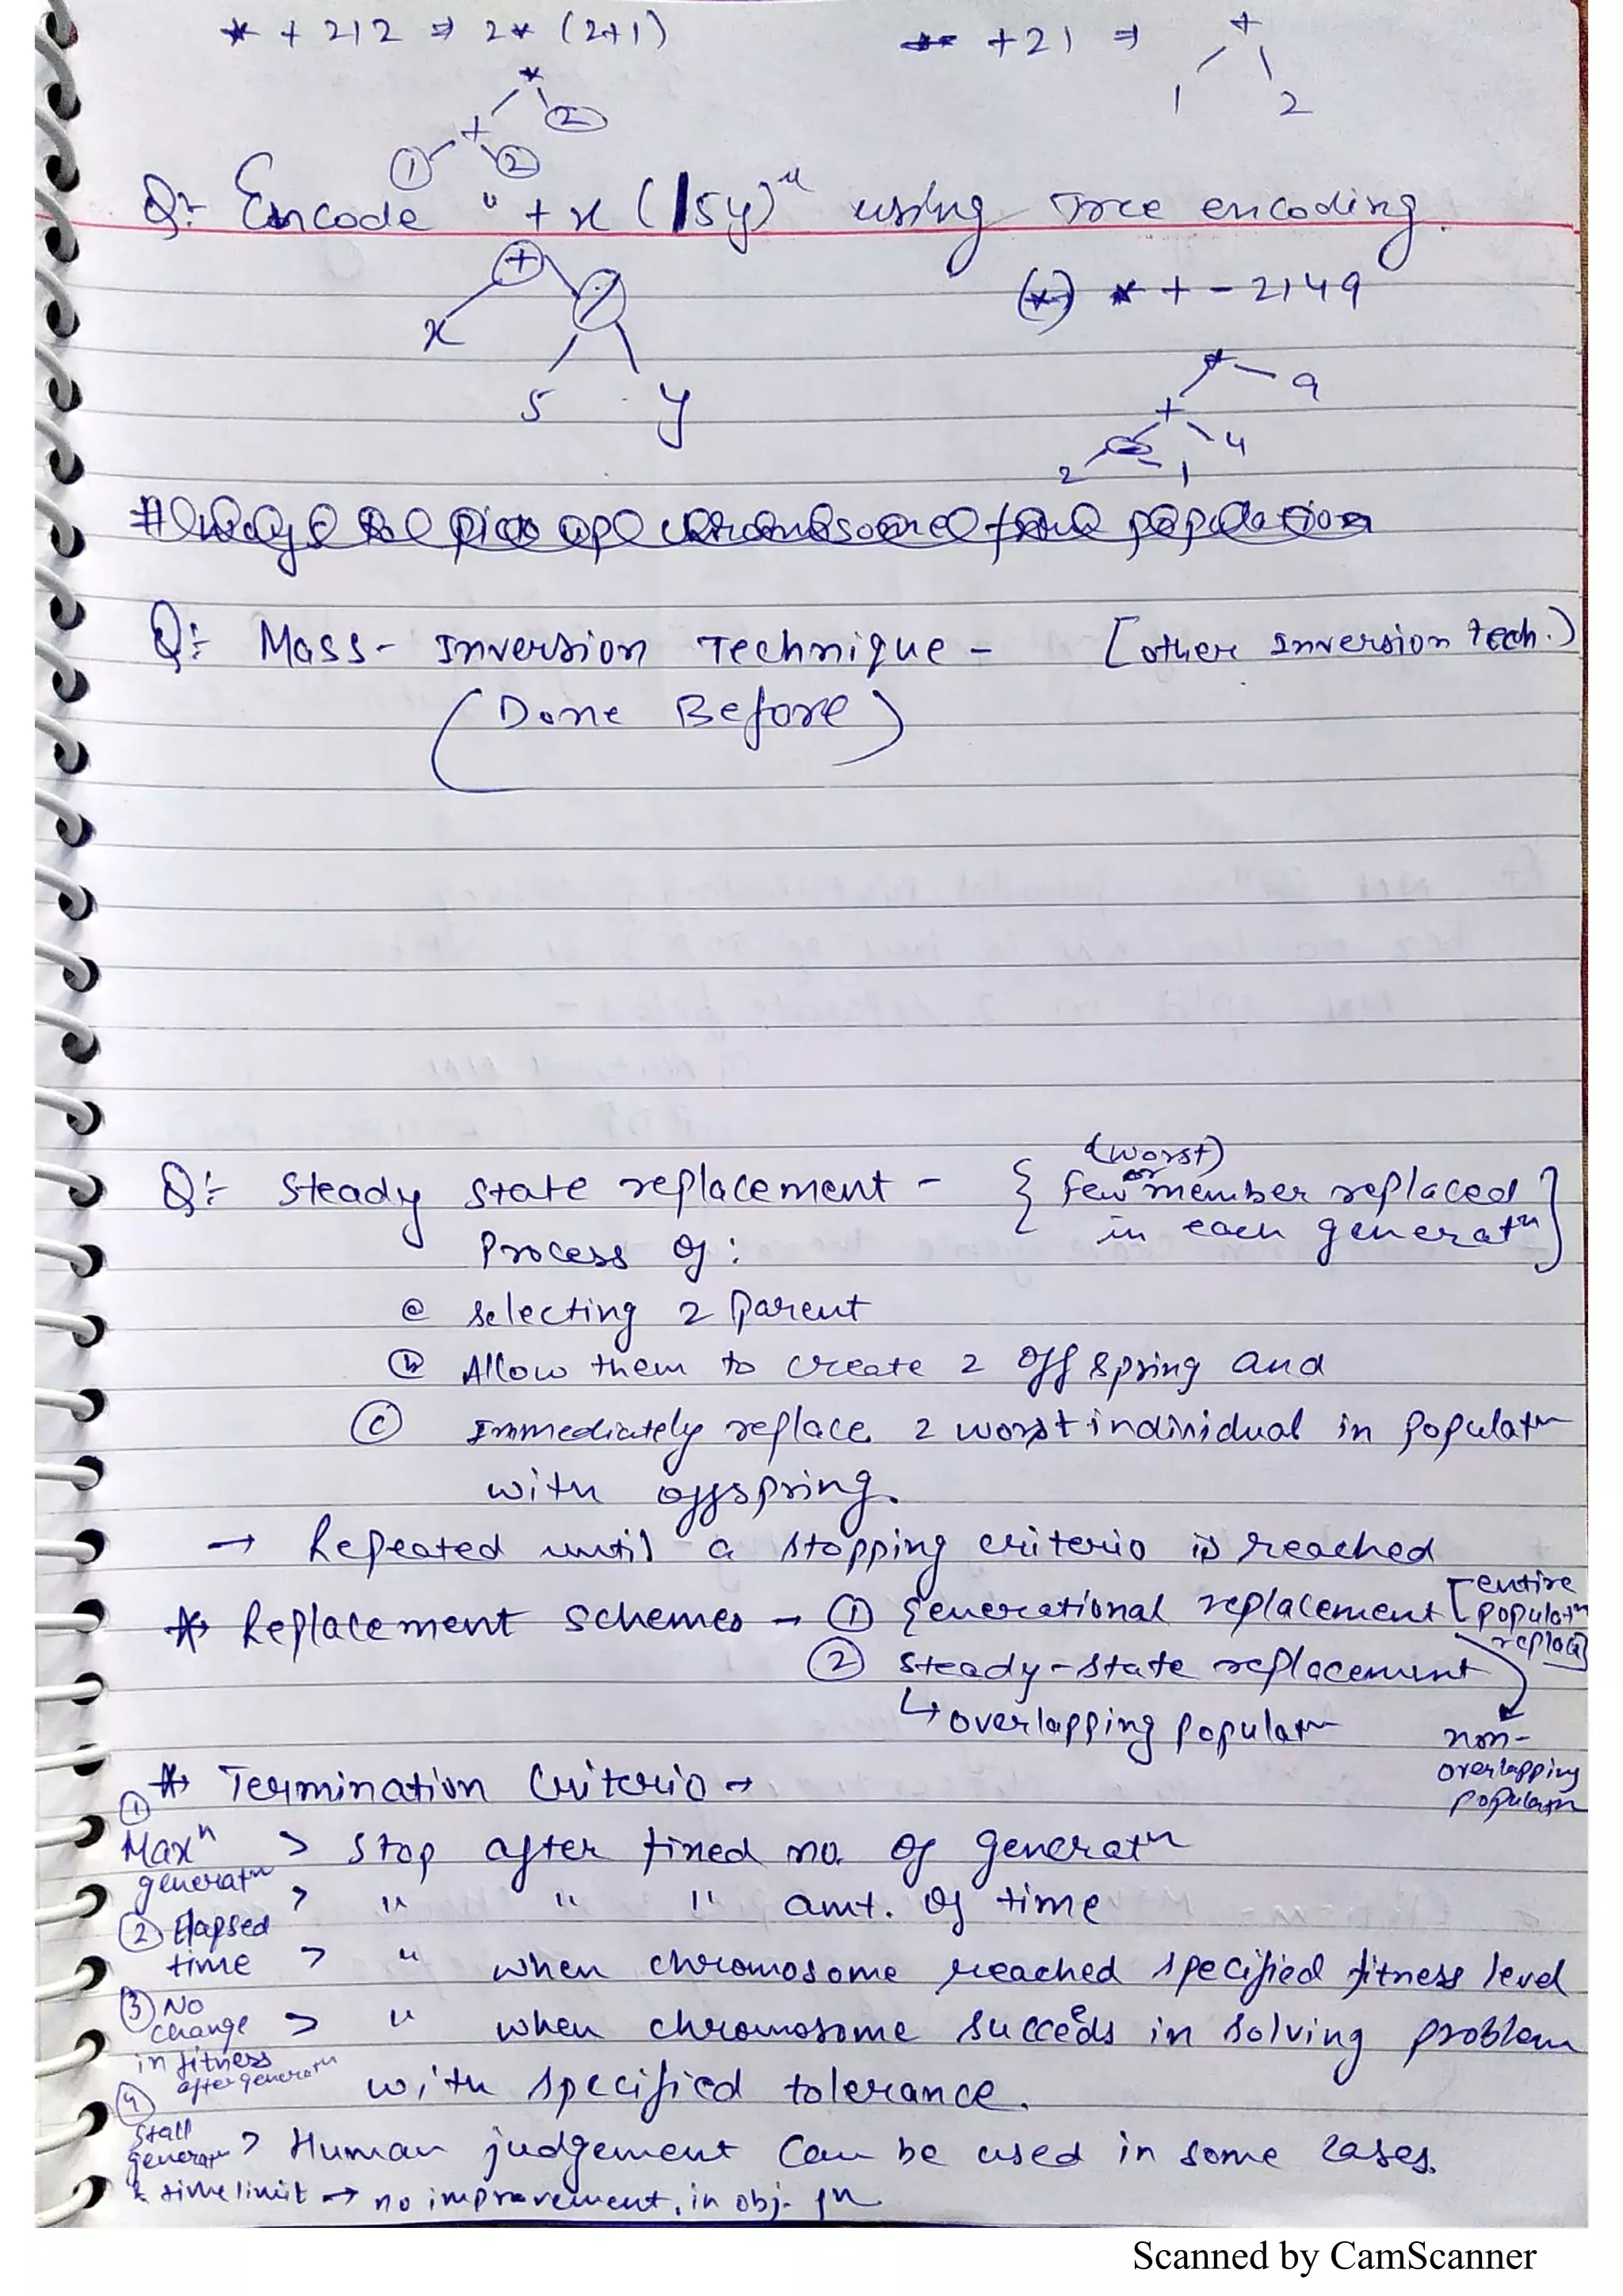 * + 212 ⇒ 2* (2+1)
+21 ⇒ +
1 2
*
+ 2
1 2
Q:- Encode "+x (/5y)" using Tree encoding.
+
x /
5 y
(*) * + - 2149
* 9
+ 4
2 - 1
Q:- Mass- Inversion Technique - [other Inversion tech.)
(Done Before)
Q:- Steady State replacement - { few or (worst) member replaced
in each generatn }
Process of :
ⓐ selecting 2 Parent
ⓑ Allow them to create 2 offspring and
ⓒ Immediately replace 2 worst individual in populatn
with offspring.
→ Repeated until a stopping criterio is reached
* Replacement schemes → ① Generational replacement [entire
populatn
replace]
② Steady-State replacement
↳ overlapping populatn
non-
overlapping
populatn
* Termination Criterio →
① Maxn generatn > Stop after fixed no. of generatn
② Elapsed time > " " " amt. of time
> " when chromosome reached specified fitness level
③ No change in fitness after generatn > " when chromosome succeeds in solving problem
with specified tolerance.
④ Stall generatn > Human judgement can be used in some cases.
& time limit → no improvement, in obj. fn
Scanned by CamScanner